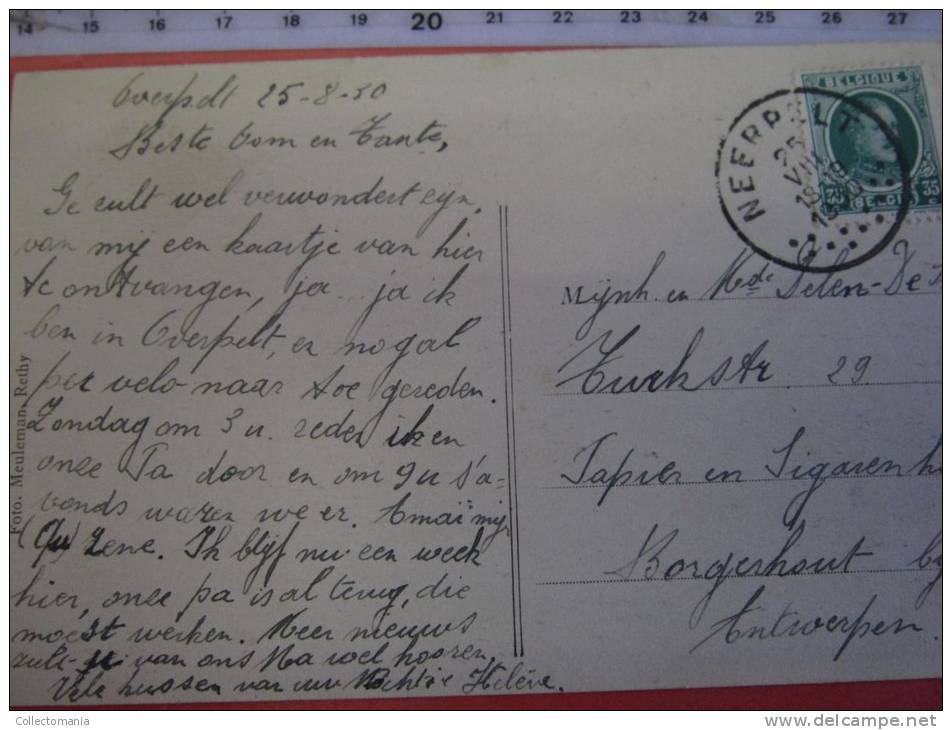 14 15 16 17 18 19 20 21 22 23 24 25 26 27
Overpelt 25-8-30
Beste Oom en Tante,
Ge zult wel verwondert zijn,
van mij een kaartje van hier
te ontvangen, ja... ja ik
ben in Overpelt, en nogal
per velo naar toe gereden.
Zondag om 3 u. reden ik en
onze Pa door en om 9 u s'a-
vonds waren we er. Amaï mijn
zene. Ik blijf nu een week
hier, onze pa is al terug, die
moest werken. Meer nieuws
zult u van ons Ma wel hooren.
Vele kussen van uw Nichtje Helène.
Foto. Meuleman, Rethy
BELGIQUE
35 BELGIË 35
NEERPELT
25
VIII
18-19
1930
Mijnh. en Mde Delen-De
Turkstr. 29
Papier en Sigarenh
Borgerhout by
Antwerpen.
Collectomania
www.delcampe.net